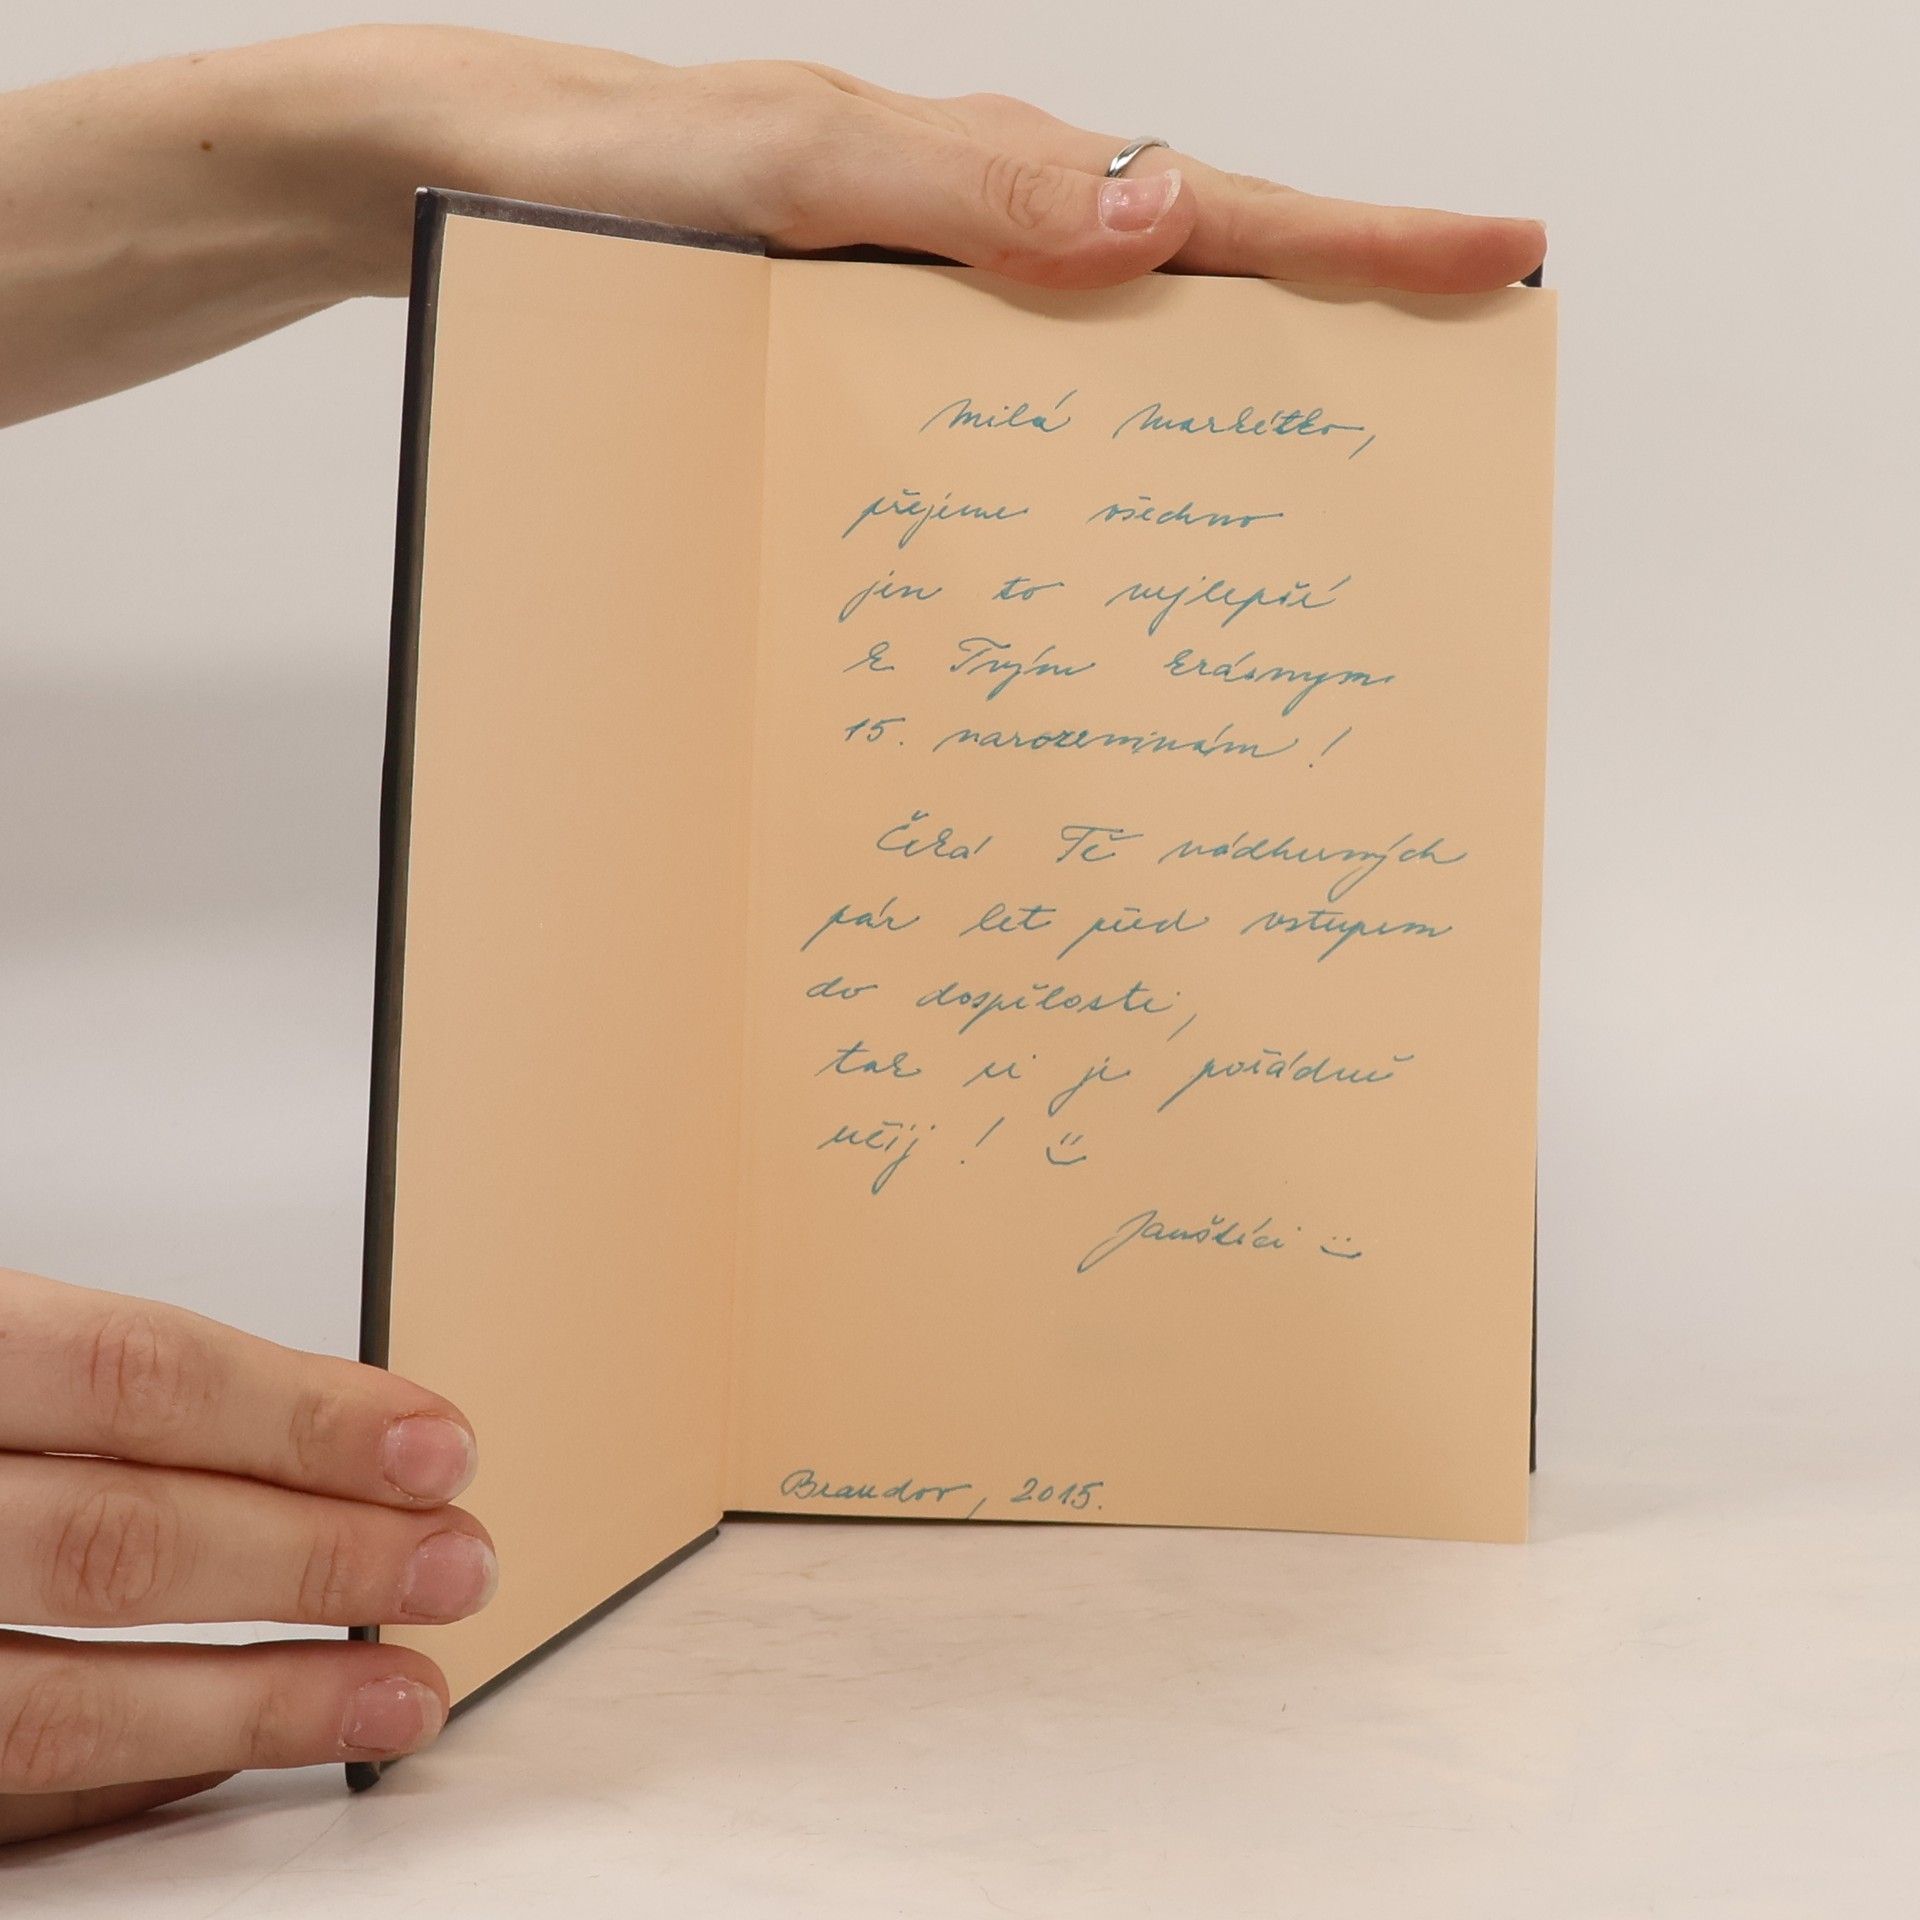 Milá Markétko,
přejeme všechno
jen to nejlepší
k Tvým krásným
15. narozeninám!
Čeká Tě nádherných
pár let před vstupem
do dospělosti,
tak si je pořádně
užij! :)
Janštíci :)
Brandov, 2015.